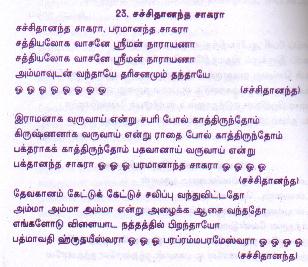 23. சச்சிதானந்த சாகரா
சச்சிதானந்த சாகரா, பரமானந்த சாகரா
சத்தியலோக வாசனே ஸ்ரீமன் நாராயணா
சத்தியலோக வாசனே ஸ்ரீமன் நாராயணா
அம்மாவுடன் வந்தாயே தரிசனமும் தந்தாயே
ஓ ஓ ஓ ஓ ஓ ஓ ஓ ஓ (சச்சிதானந்த)
இராமனாக வருவாய் என்று சபரி போல் காத்திருந்தோம்
கிருஷ்ணனாக வருவாய் என்று ராதை போல் காத்திருந்தோம்
பக்தராகக் காத்திருந்தோம் பதவானாய் வருவாய் என்று
பக்தானந்த சாகரா ஓ ஓ ஓ பரமானாந்த சாகரா ஓ ஓ ஓ ஓ
(சச்சிதானந்த)
தேவகானம் கேட்டுக் கேட்டுச் சலிப்பு வந்துவிட்டதோ
அம்மா அம்மா அம்மா என்று அழைக்க ஆசை வந்ததோ
எங்களோடு விளையாட நத்தத்தில் பிறந்தாயோ
பத்மாவதி ஹ்ருதயீஸ்வரா ஓ ஓ ஓ பரப்ரம்பரமேஸ்வரா ஓ ஓ ஓ ஓ
(சச்சிதானந்த)